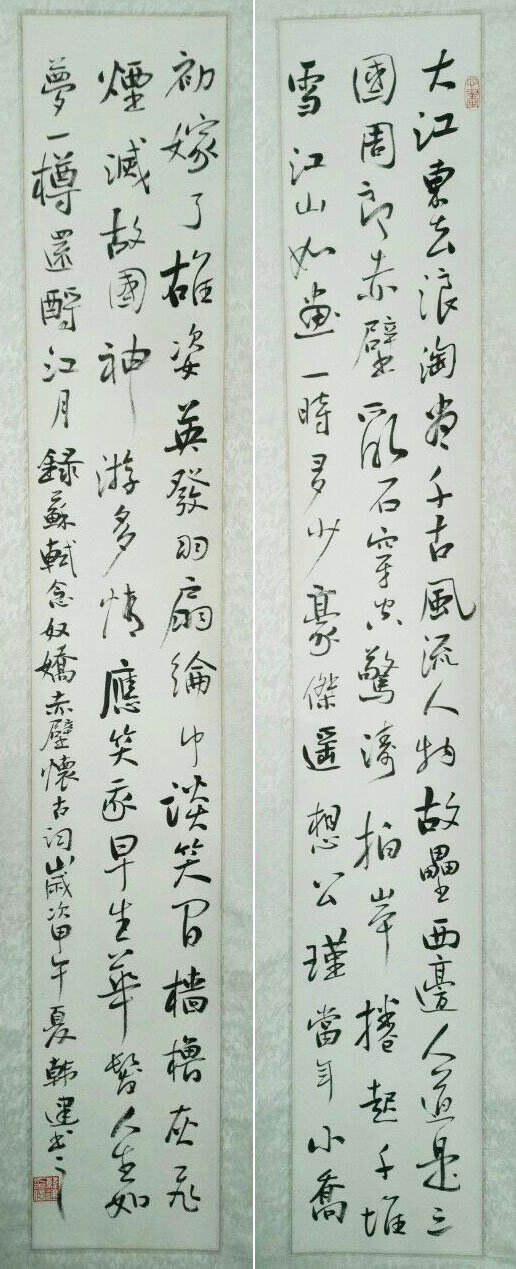 大江東去浪淘盡千古風流人物故壘西邊人道是三
國周郎赤壁亂石穿空驚濤拍岸捲起千堆
雪江山如畫一時多少豪傑遥想公瑾當年小喬
初嫁了雄姿英發羽扇綸巾談笑間檣櫓灰飛
煙滅故國神游多情應笑我早生華髮人生如
夢一樽還酹江月 録蘇軾念奴嬌赤壁懷古詞歲次甲午夏韓建書